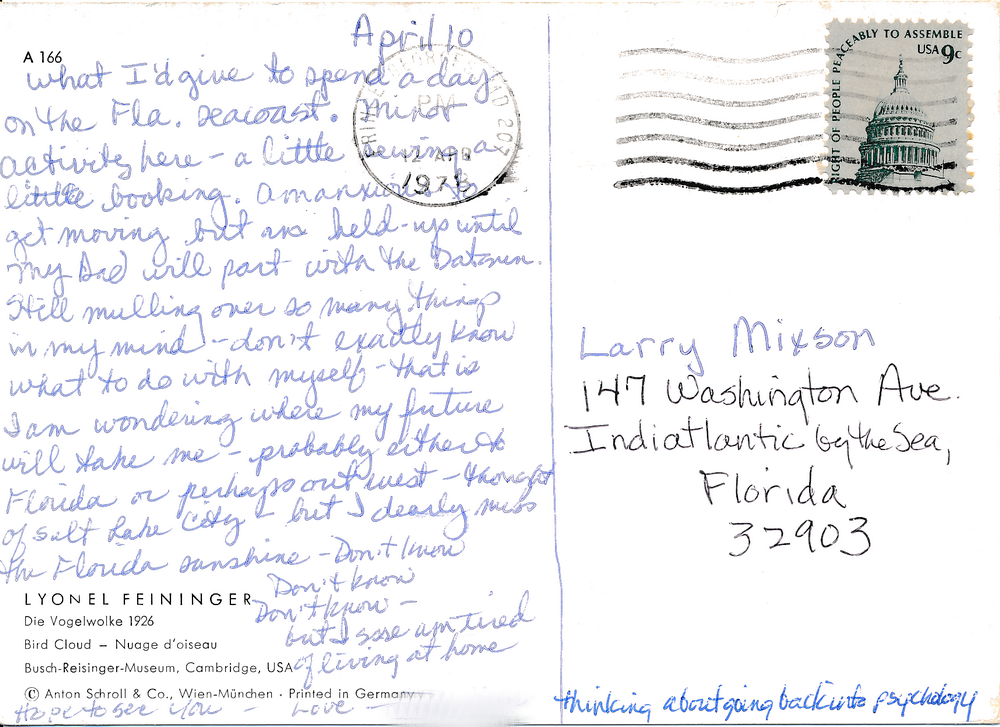 April 10
A 166
What I'd give to spend a day
on the Fla. seacoast. Minor
activity here - a little sewing a
little booking. Am anxious to
get moving but am held-up until
my Dad will part with the Datsun.
Still mulling over so many things
in my mind - don't exactly know
what to do with myself - that is
I am wondering where my future
will take me - probably either to
Florida or perhaps out west - thought
of Salt Lake City - but I dearly miss
the Florida sunshine - Don't know
Don't know
Don't know -
but I sure am tired
of living at home
LYONEL FEININGER
Die Vogelwolke 1926
Bird Cloud – Nuage d'oiseau
Busch-Reisinger-Museum, Cambridge, USA
© Anton Schroll & Co., Wien-München · Printed in Germany
Hope to see you - Love -
PM
12 APR
1978
RIGHT OF PEOPLE PEACEABLY TO ASSEMBLE
USA 9c
Larry Mixson
147 Washington Ave.
Indiatlantic by the Sea,
Florida
32903
thinking about going back into psychology